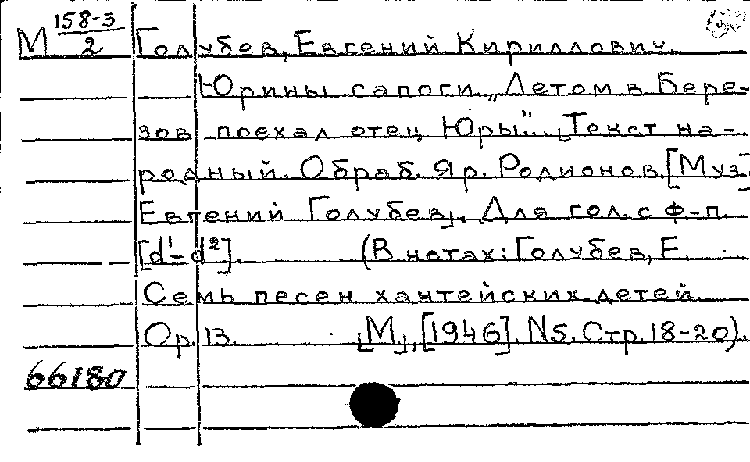 М 158-3/2 Голубев, Евгений Кириллович.
Юрины сапоги. „Летом в Бере-
зов поехал отец Юры". [Текст на-
родный. Обраб. Яр. Родионов. [Муз.]
Евгений Голубев]. Для гол. с ф-п.
[d¹-d²]. (В нотах: Голубев, Е.
Семь песен хантейских детей.
Ор. 13. [М], [1946]. N5. Стр. 18-20).
66180